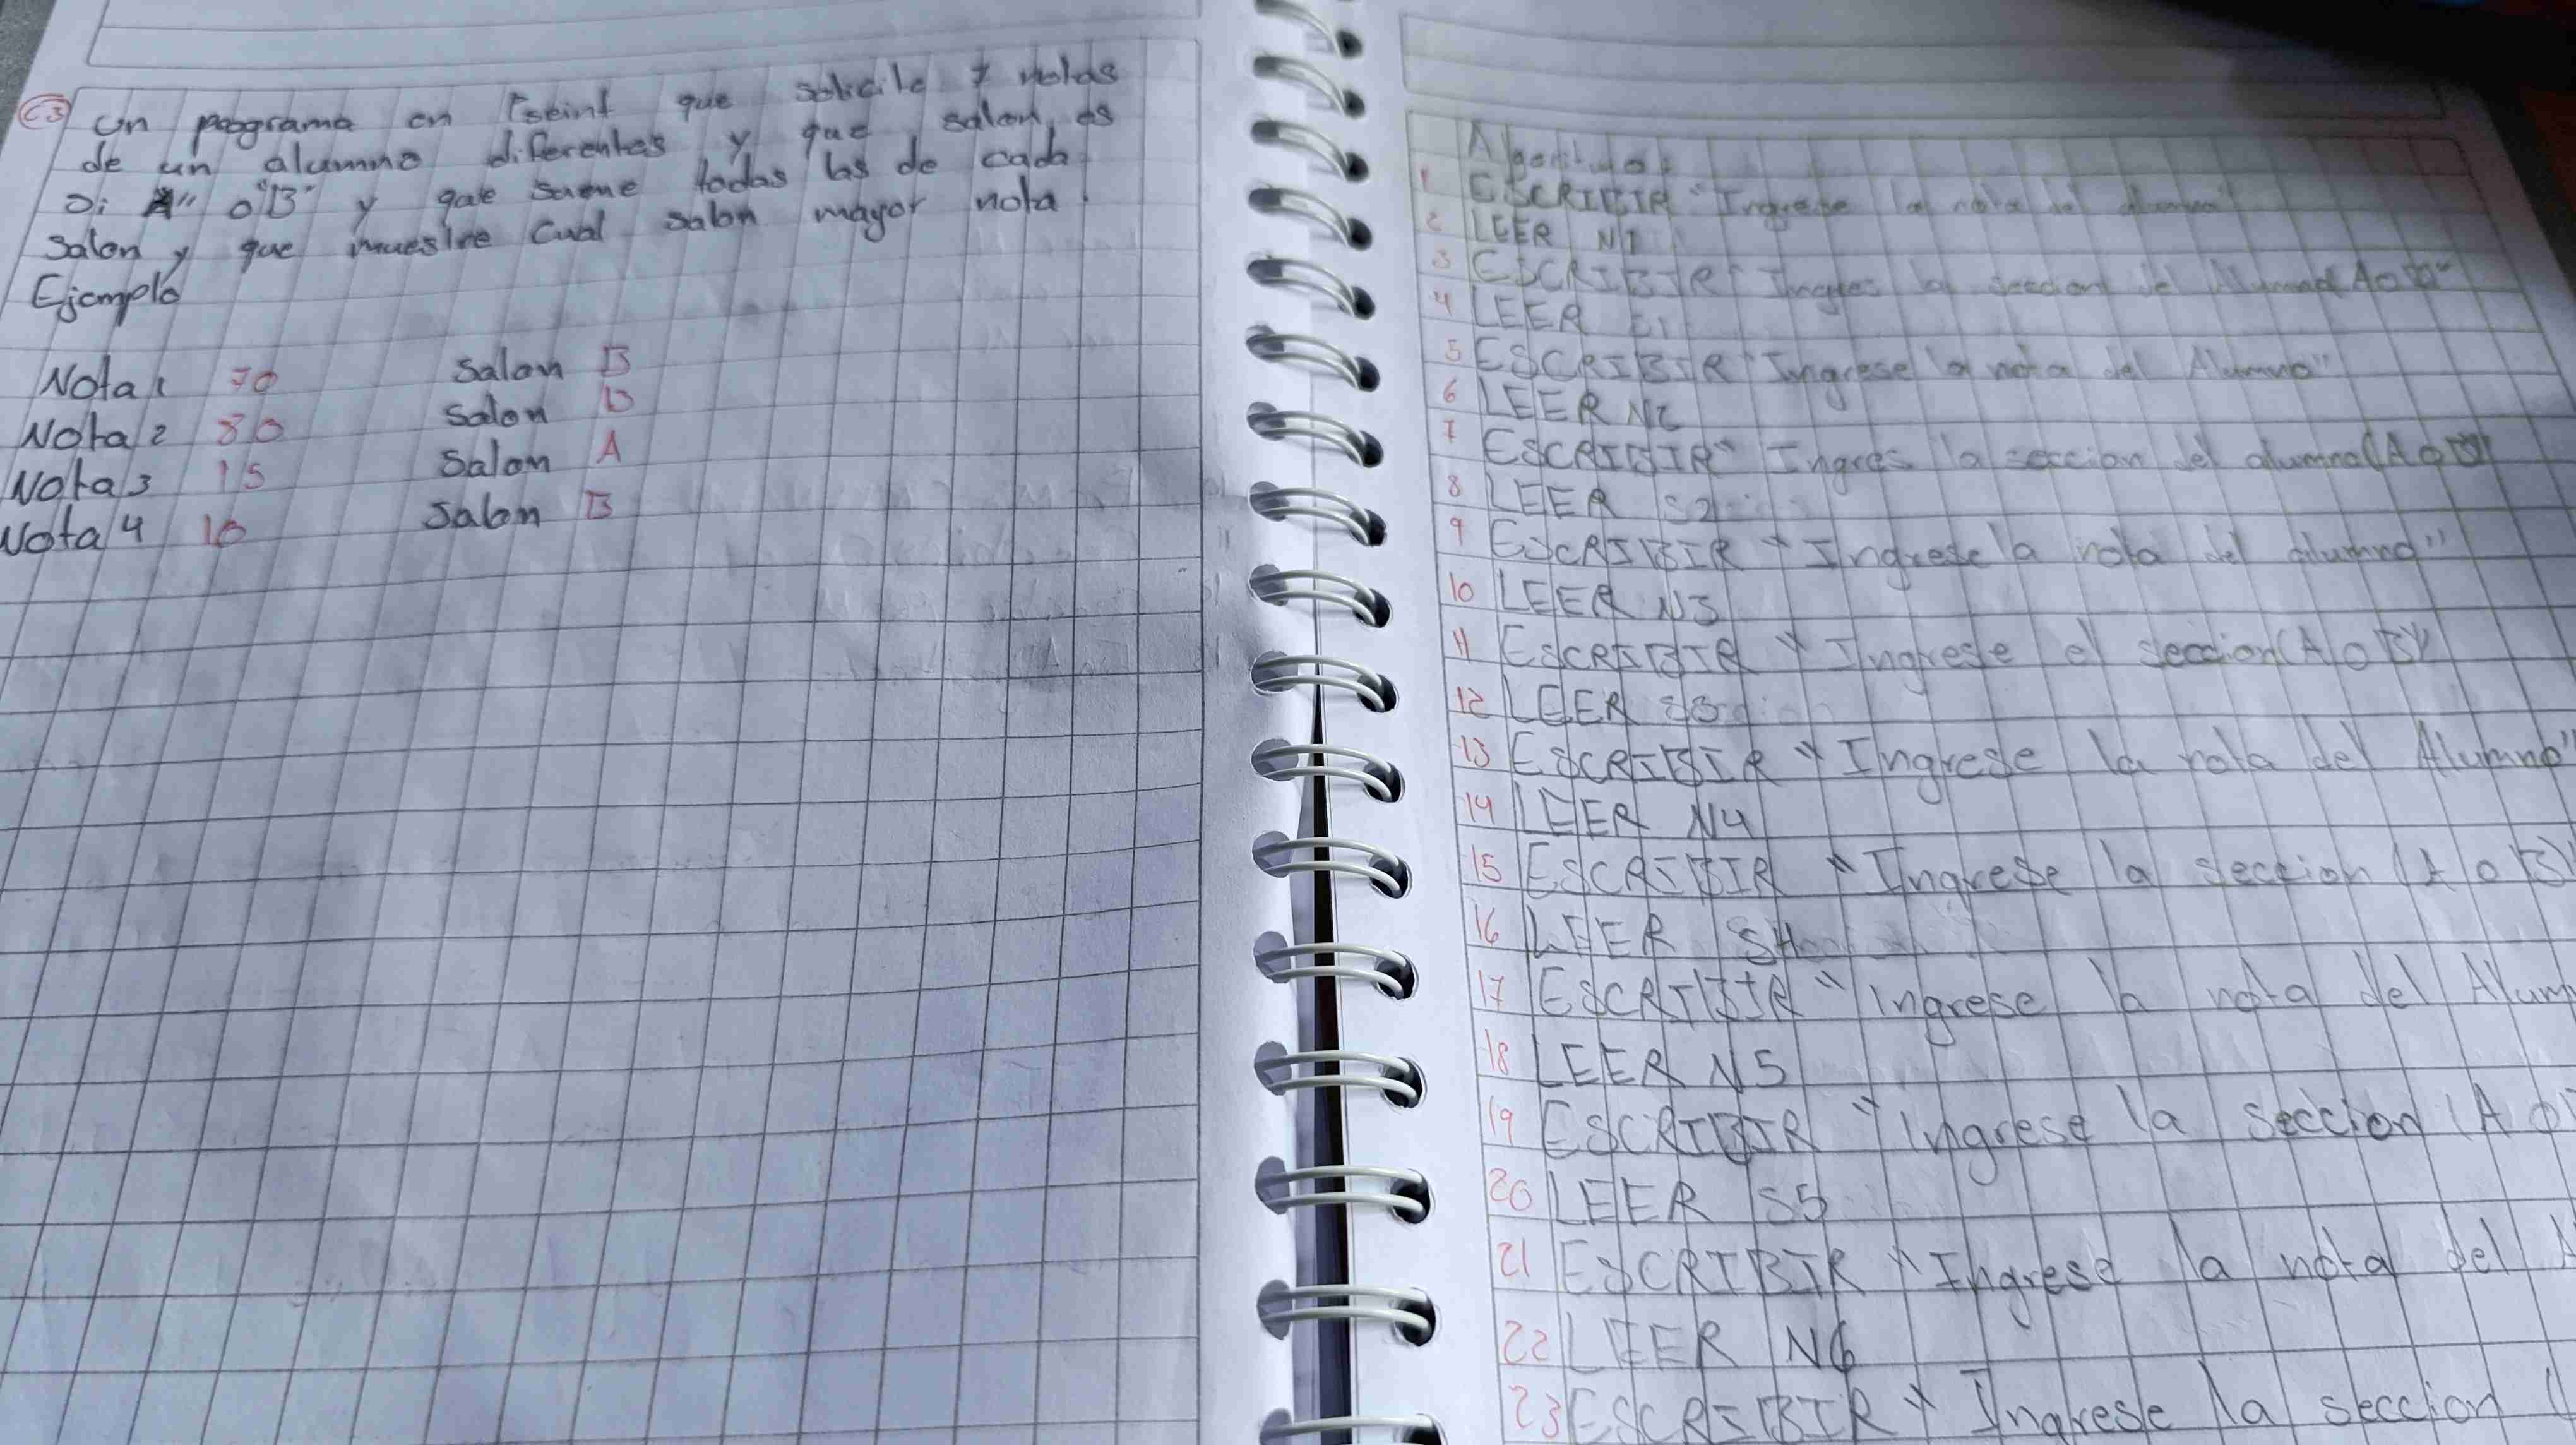 C3 Un programa en Pseint que solicite 7 notas
de un alumno diferentes y que salon es
Di "A" o "B" y que sume todas las de cada
salon y que muestre cual salon mayor nota.
Ejemplo
Nota1 70 Salon B
Nota2 80 Salon B
Nota3 15 Salon A
Nota4 10 Salon B
Algoritmo:
1 ESCRIBIR "Ingrese la nota del alumno"
2 LEER N1
3 ESCRIBIR "Ingres la seccion del Alumno(A o B"
4 LEER S1
5 ESCRIBIR "Ingrese la nota del Alumno"
6 LEER N2
7 ESCRIBIR "Ingres la seccion del alumno(A o B)
8 LEER S2
9 ESCRIBIR "Ingrese la nota del alumno"
10 LEER N3
11 ESCRIBIR "Ingrese el seccion(A o B)"
12 LEER S3
13 ESCRIBIR "Ingrese la nota del Alumno"
14 LEER N4
15 ESCRIBIR "Ingrese la seccion (A o B)"
16 LEER S4
17 ESCRIBIR "Ingrese la nota del Alum
18 LEER N5
19 ESCRIBIR "Ingrese la seccion (A o
20 LEER S5
21 ESCRIBIR "Ingrese la nota del A
22 LEER N6
23 ESCRIBIR "Ingrese la seccion (